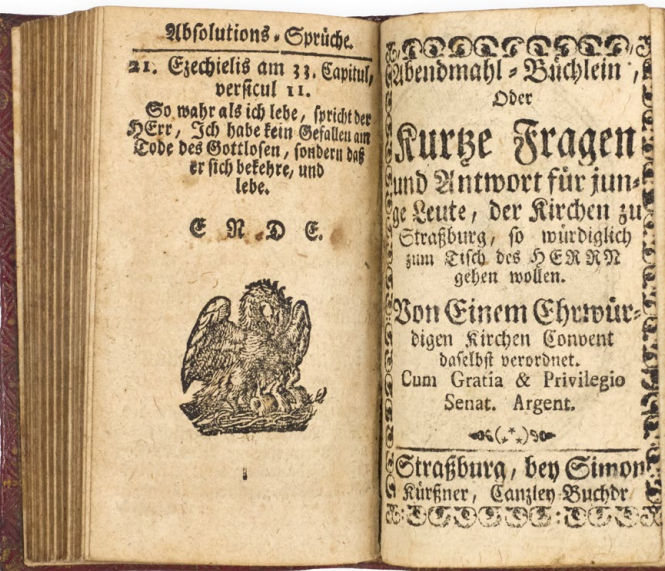 Absolutions-Sprüche.
21. Ezechielis am 33. Capitul,
versicul 11.
So wahr als ich lebe, spricht der
HErr, Ich habe kein Gefallen am
Tode des Gottlosen, sondern daß
er sich bekehre, und
lebe.
E N D E.
Abendmahl-Büchlein,
Oder
Kurtze Fragen
und Antwort für jun-
ge Leute, der Kirchen zu
Straßburg, so würdiglich
zum Tisch des HERRN
gehen wollen.
Von Einem Ehrwür-
digen Kirchen Convent
daselbst verordnet.
Cum Gratia & Privilegio
Senat. Argent.
Straßburg, bey Simon
Kürßner, Cantzley-Buchdr